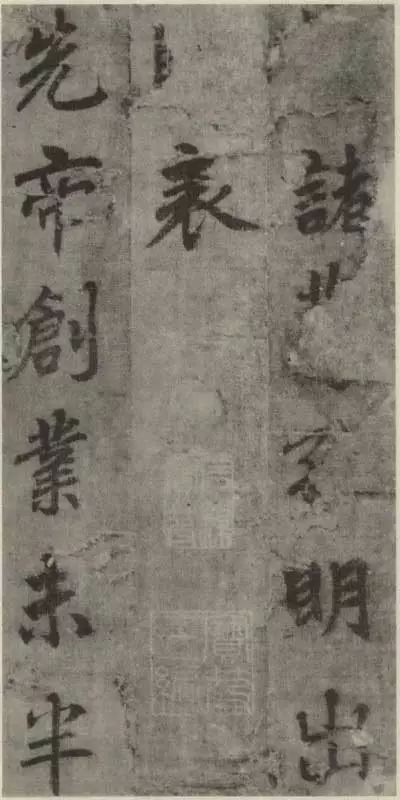 諸葛孔明出
表
先帝創業未半